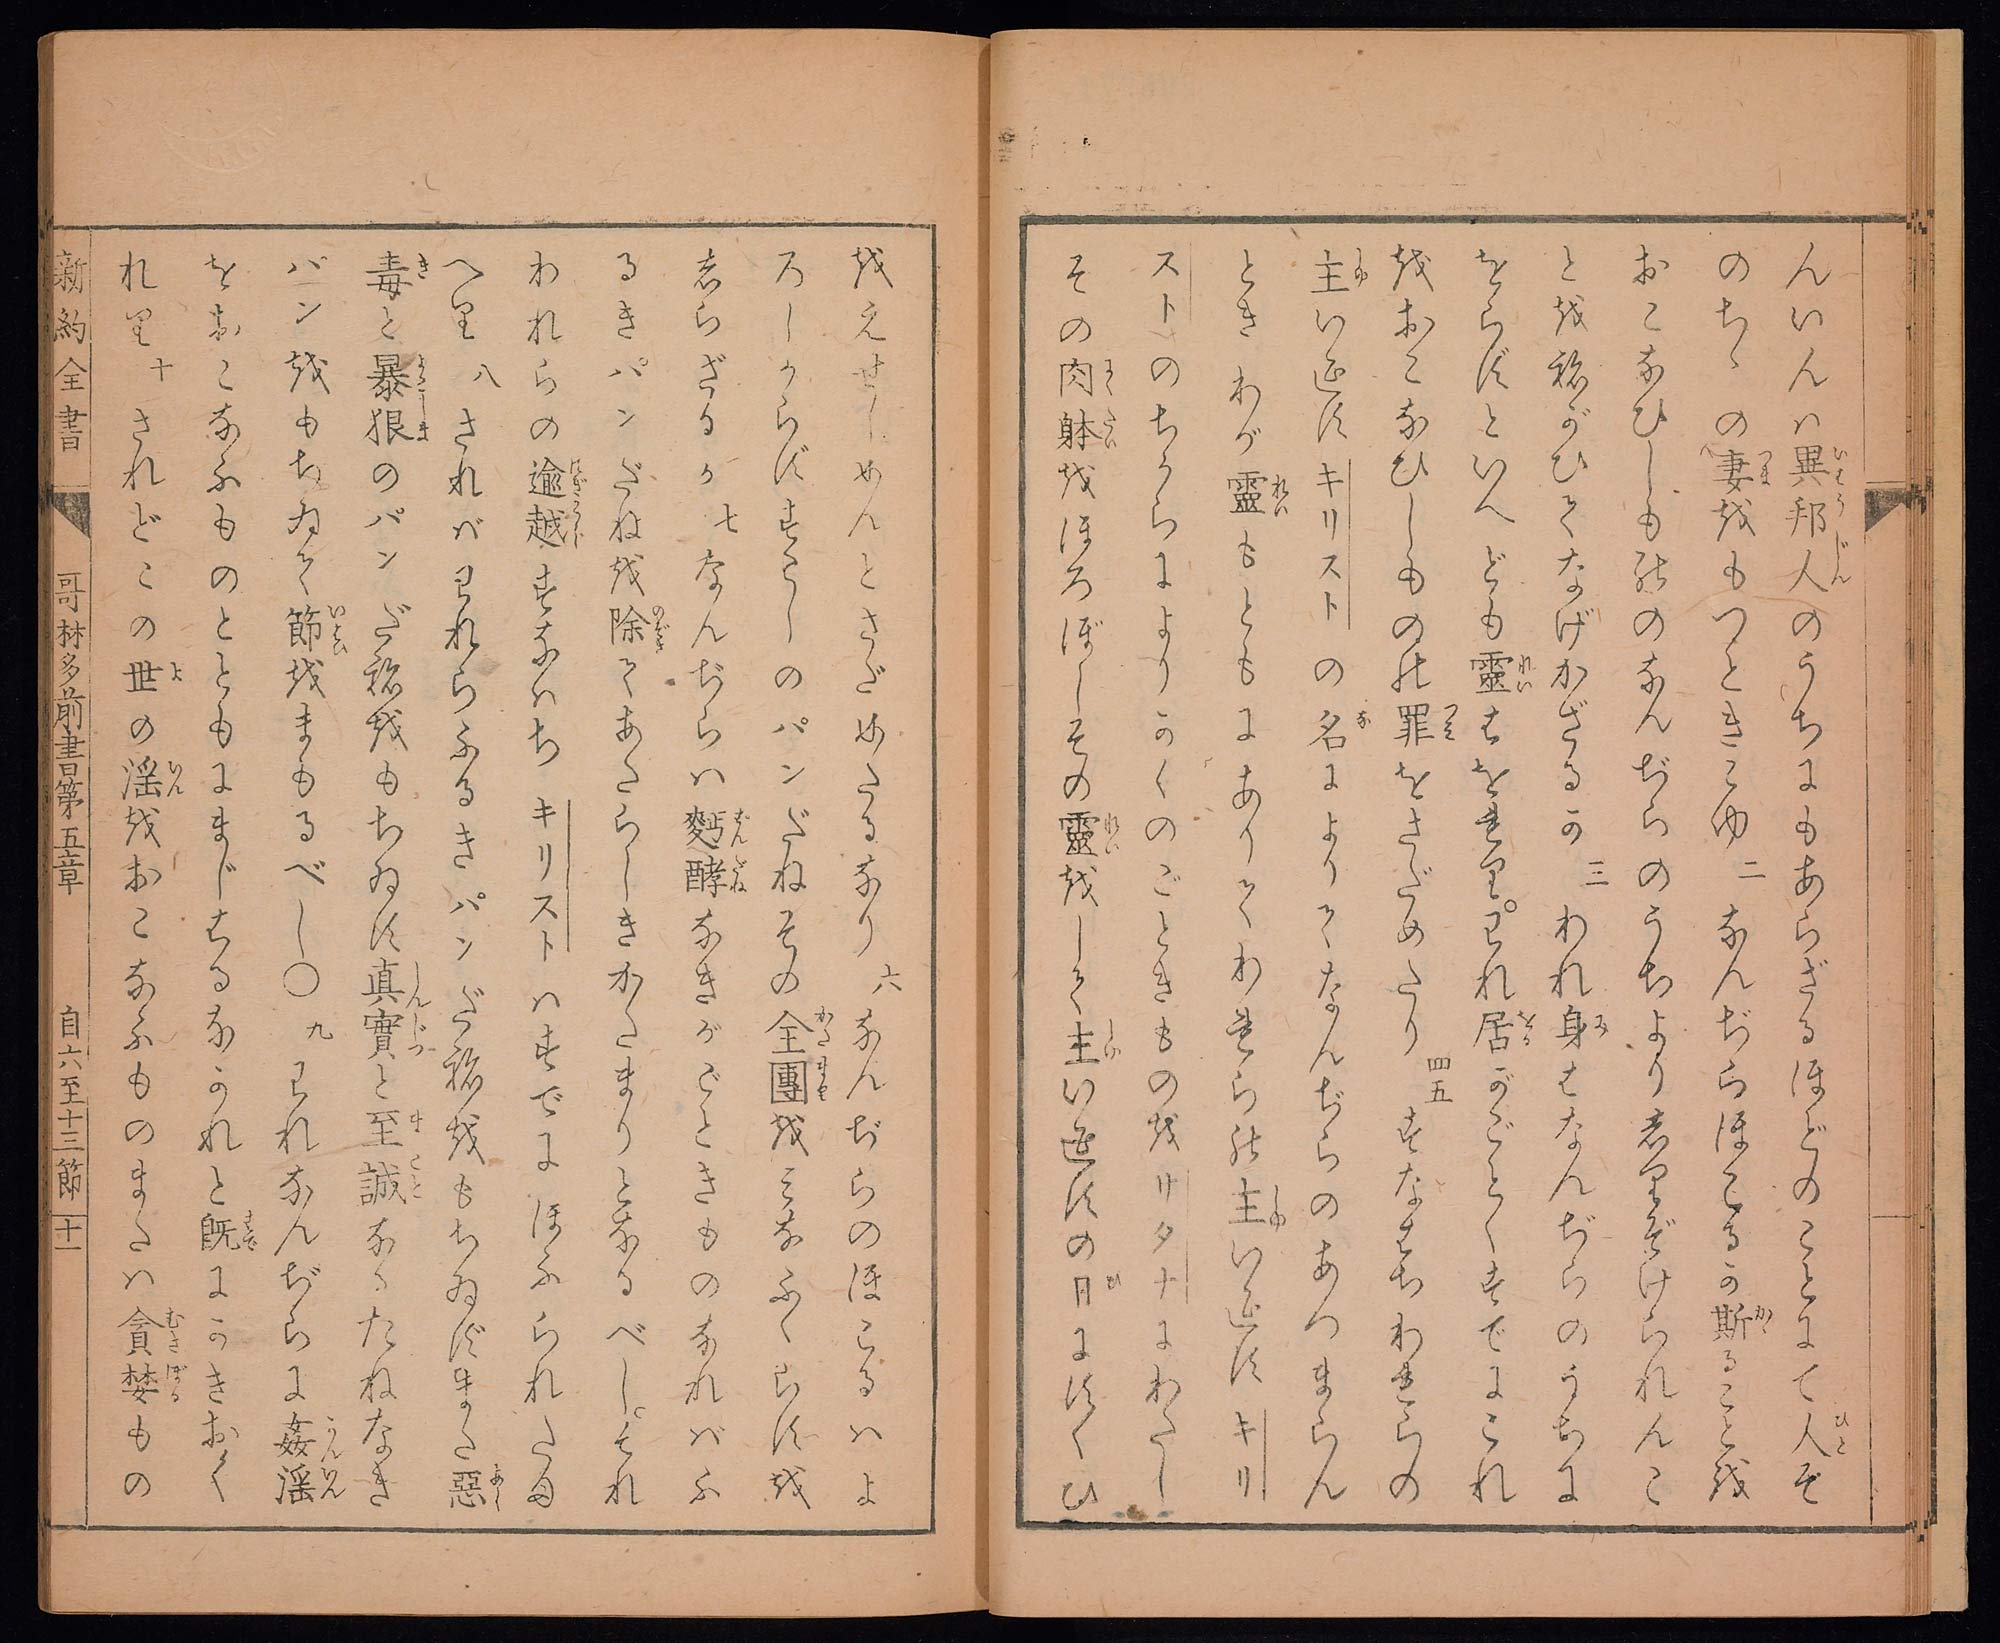 んいんハ異邦人のうちにもあらざるほどのことにて人その
のちゝの妻をもつときこゆ二なんぢらほこるか斯ることを
おこなひしものゝなんぢらのうちより志りぞけられんこ
とをねがひてなげかざるか三われ身はなんぢらのうちに
をらずといへども靈はをれりわれ居がごとくすでにこれ
をおこなひしものの罪をさだめたり四五すなはちわれらの
主いゑすキリストの名によりてなんぢらのあつまらん
ときわが靈もともにありてわれらの主いゑすキリ
ストのちからによりかくのごときものをサタナにわたし
その肉躰をほろぼしその靈をして主いゑすの日にすくひ
をえせしめんとさだめたるなり六なんぢらのほこるハよ
ろしからずすこしのパンだねその全團をみなふくらすを
志らざるか七なんぢらハ麪酵なきがごときものなれバふ
るきパンだねを除てあたらしきかたまりとなるべしそれ
われらの逾越すなハちキリストハすでにほふられたま
へり八されバわれらふるきパンだねをもちゐずまた惡
毒と暴狠のパンだねをもちゐず真實と至誠なるたねなき
パンをもちゐて節をまもるべし〇九われなんぢらに姦淫
をおこなふものとともにまじはるなかれと既にかきおく
れり十されどこの世の淫をおこなふものまたハ貪婪もの
新約全書
哥林多前書第五章
自六至十三節
十一